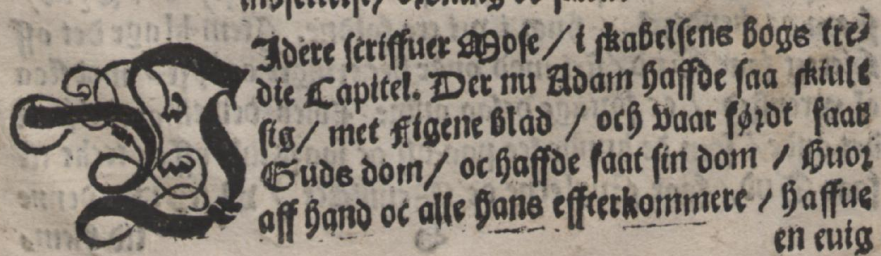 VIdere scriffuer Mose / i skabelsens bogs tre⸗
die Capitel. Der nu Adam haffde saa skiult
sig / met Figene blad / och vaar førdt faar
Guds dom / oc haffde faat sin dom / huor
aff hand oc alle hans effterkommere / haffue
en euig